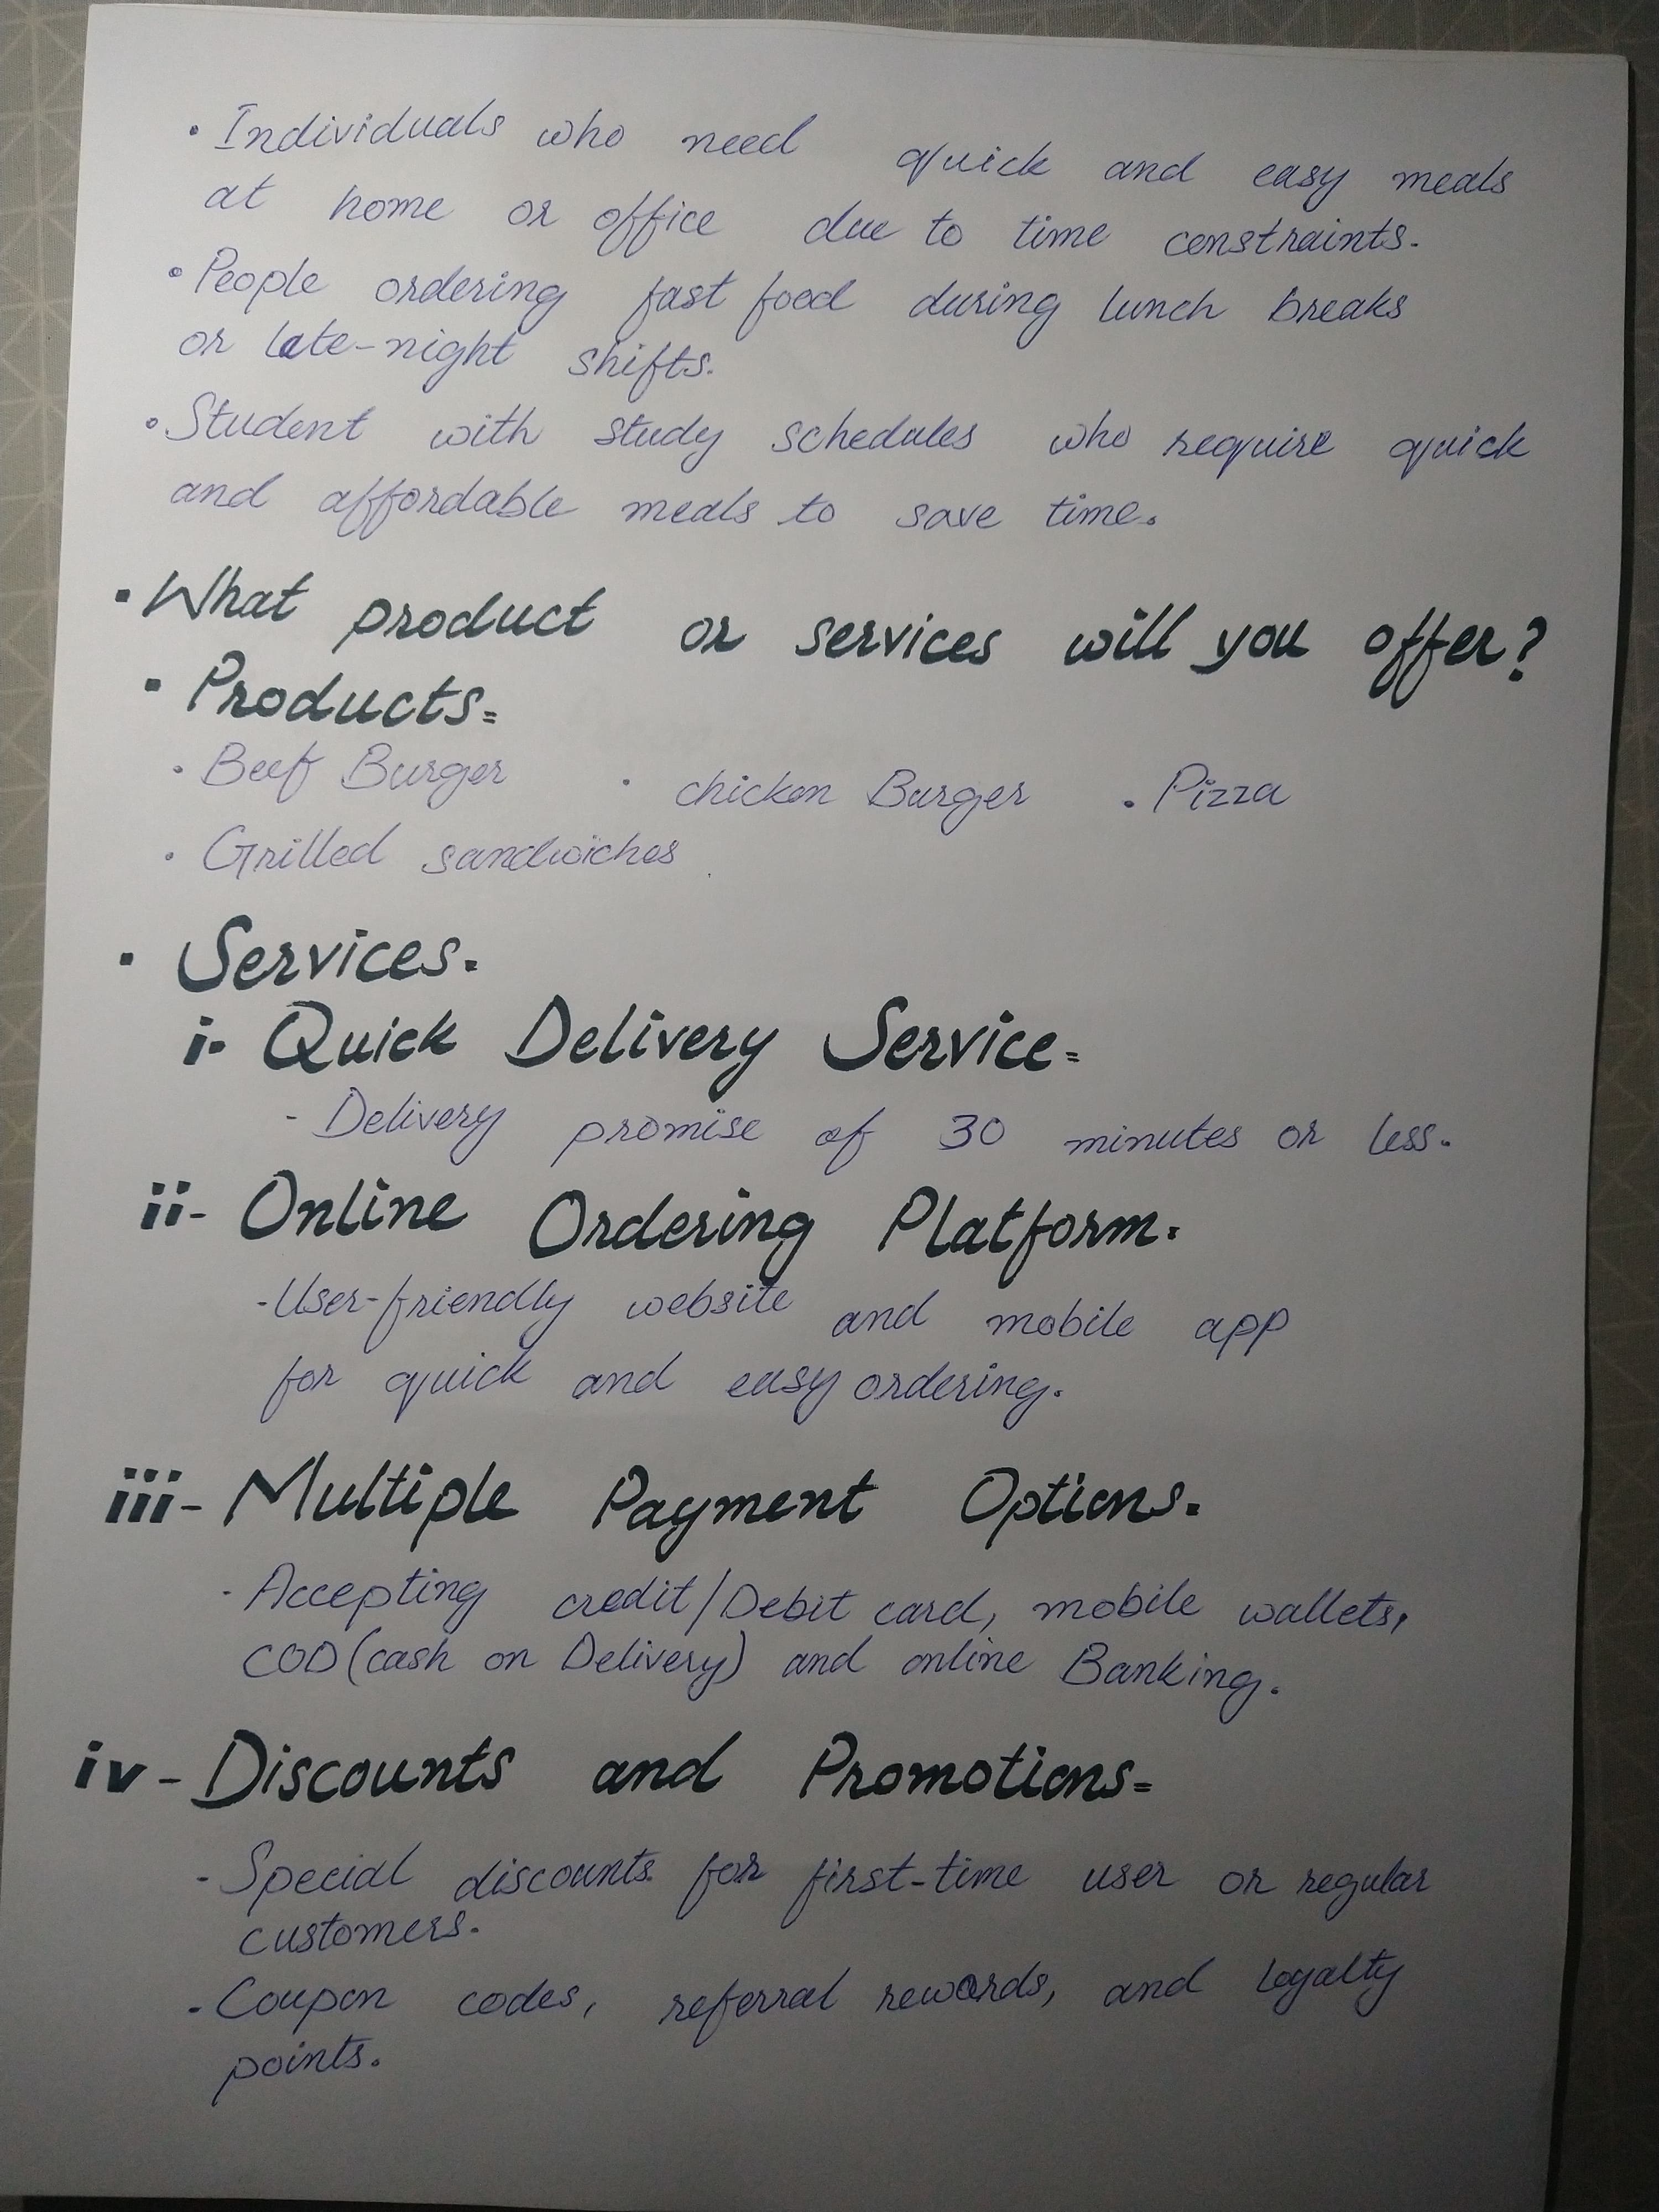 • Individuals who need quick and easy meals
at home or office due to time constraints.
• People ordering fast food during lunch breaks
or late-night shifts.
• Student with study schedules who require quick
and affordable meals to save time.
• What product or services will you offer?
• Products=
• Beef Burger • chicken Burger • Pizza
• Grilled sandwiches
• Services.
i- Quick Delivery Service=
- Delivery promise of 30 minutes or less.
ii- Online Ordering Platform.
- User-friendly website and mobile app
for quick and easy ordering.
iii- Multiple Payment Options.
- Accepting credit/Debit card, mobile wallets,
COD (cash on Delivery) and online Banking.
iv- Discounts and Promotions=
- Special discounts for first-time user or regular
customers.
- Coupon codes, referral rewards, and Loyalty
points.